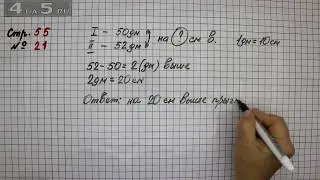 4LA5.RU
Стр. 55
№ 21
I – 50дм
II – 52дм
на ? см в.
1дм=10см
52-50=2(дм) выше
2дм=20см
Ответ: на 20 см выше прыгн